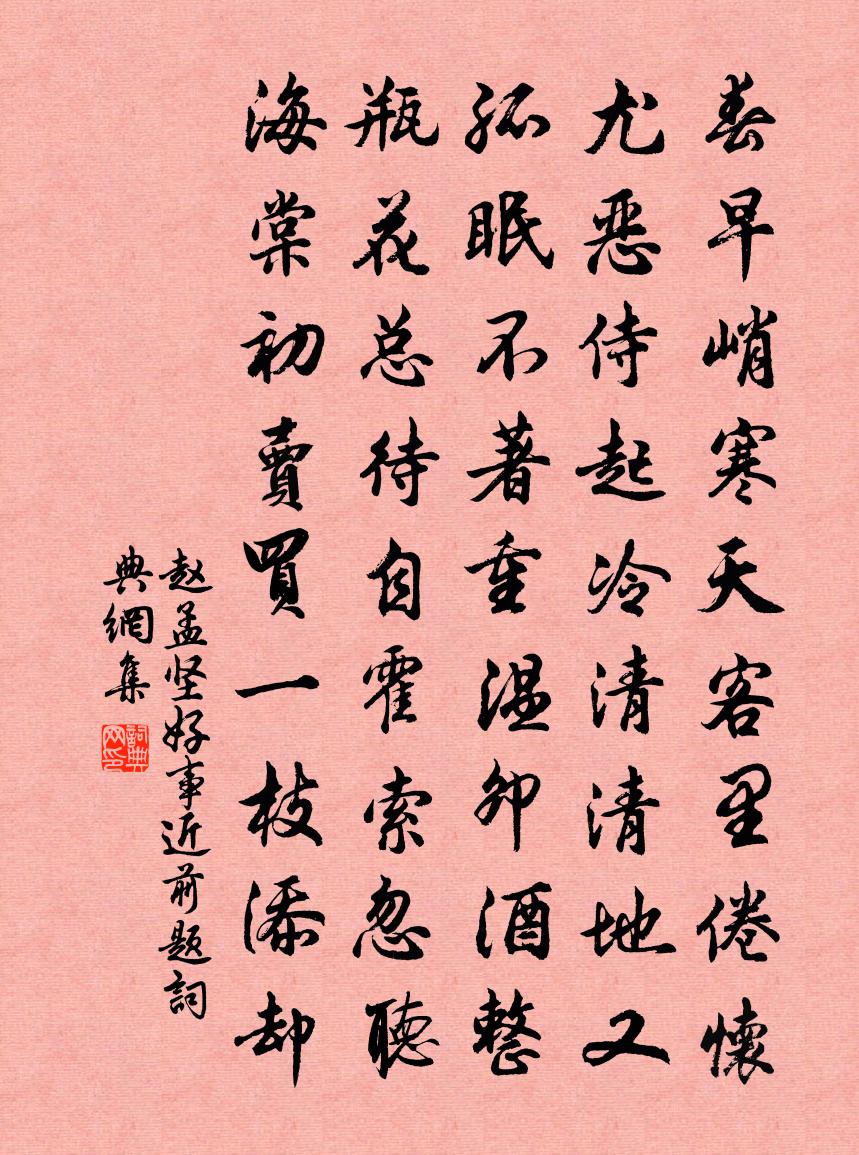 春早峭寒天客里倦懷
尤恶侍起冷清清地又
孤眠不著重温卯酒整
瓶花总待自霍索忽聽
海棠初賣買一枝添却
赵孟坚好事近前题詞
典網集
詞典网印